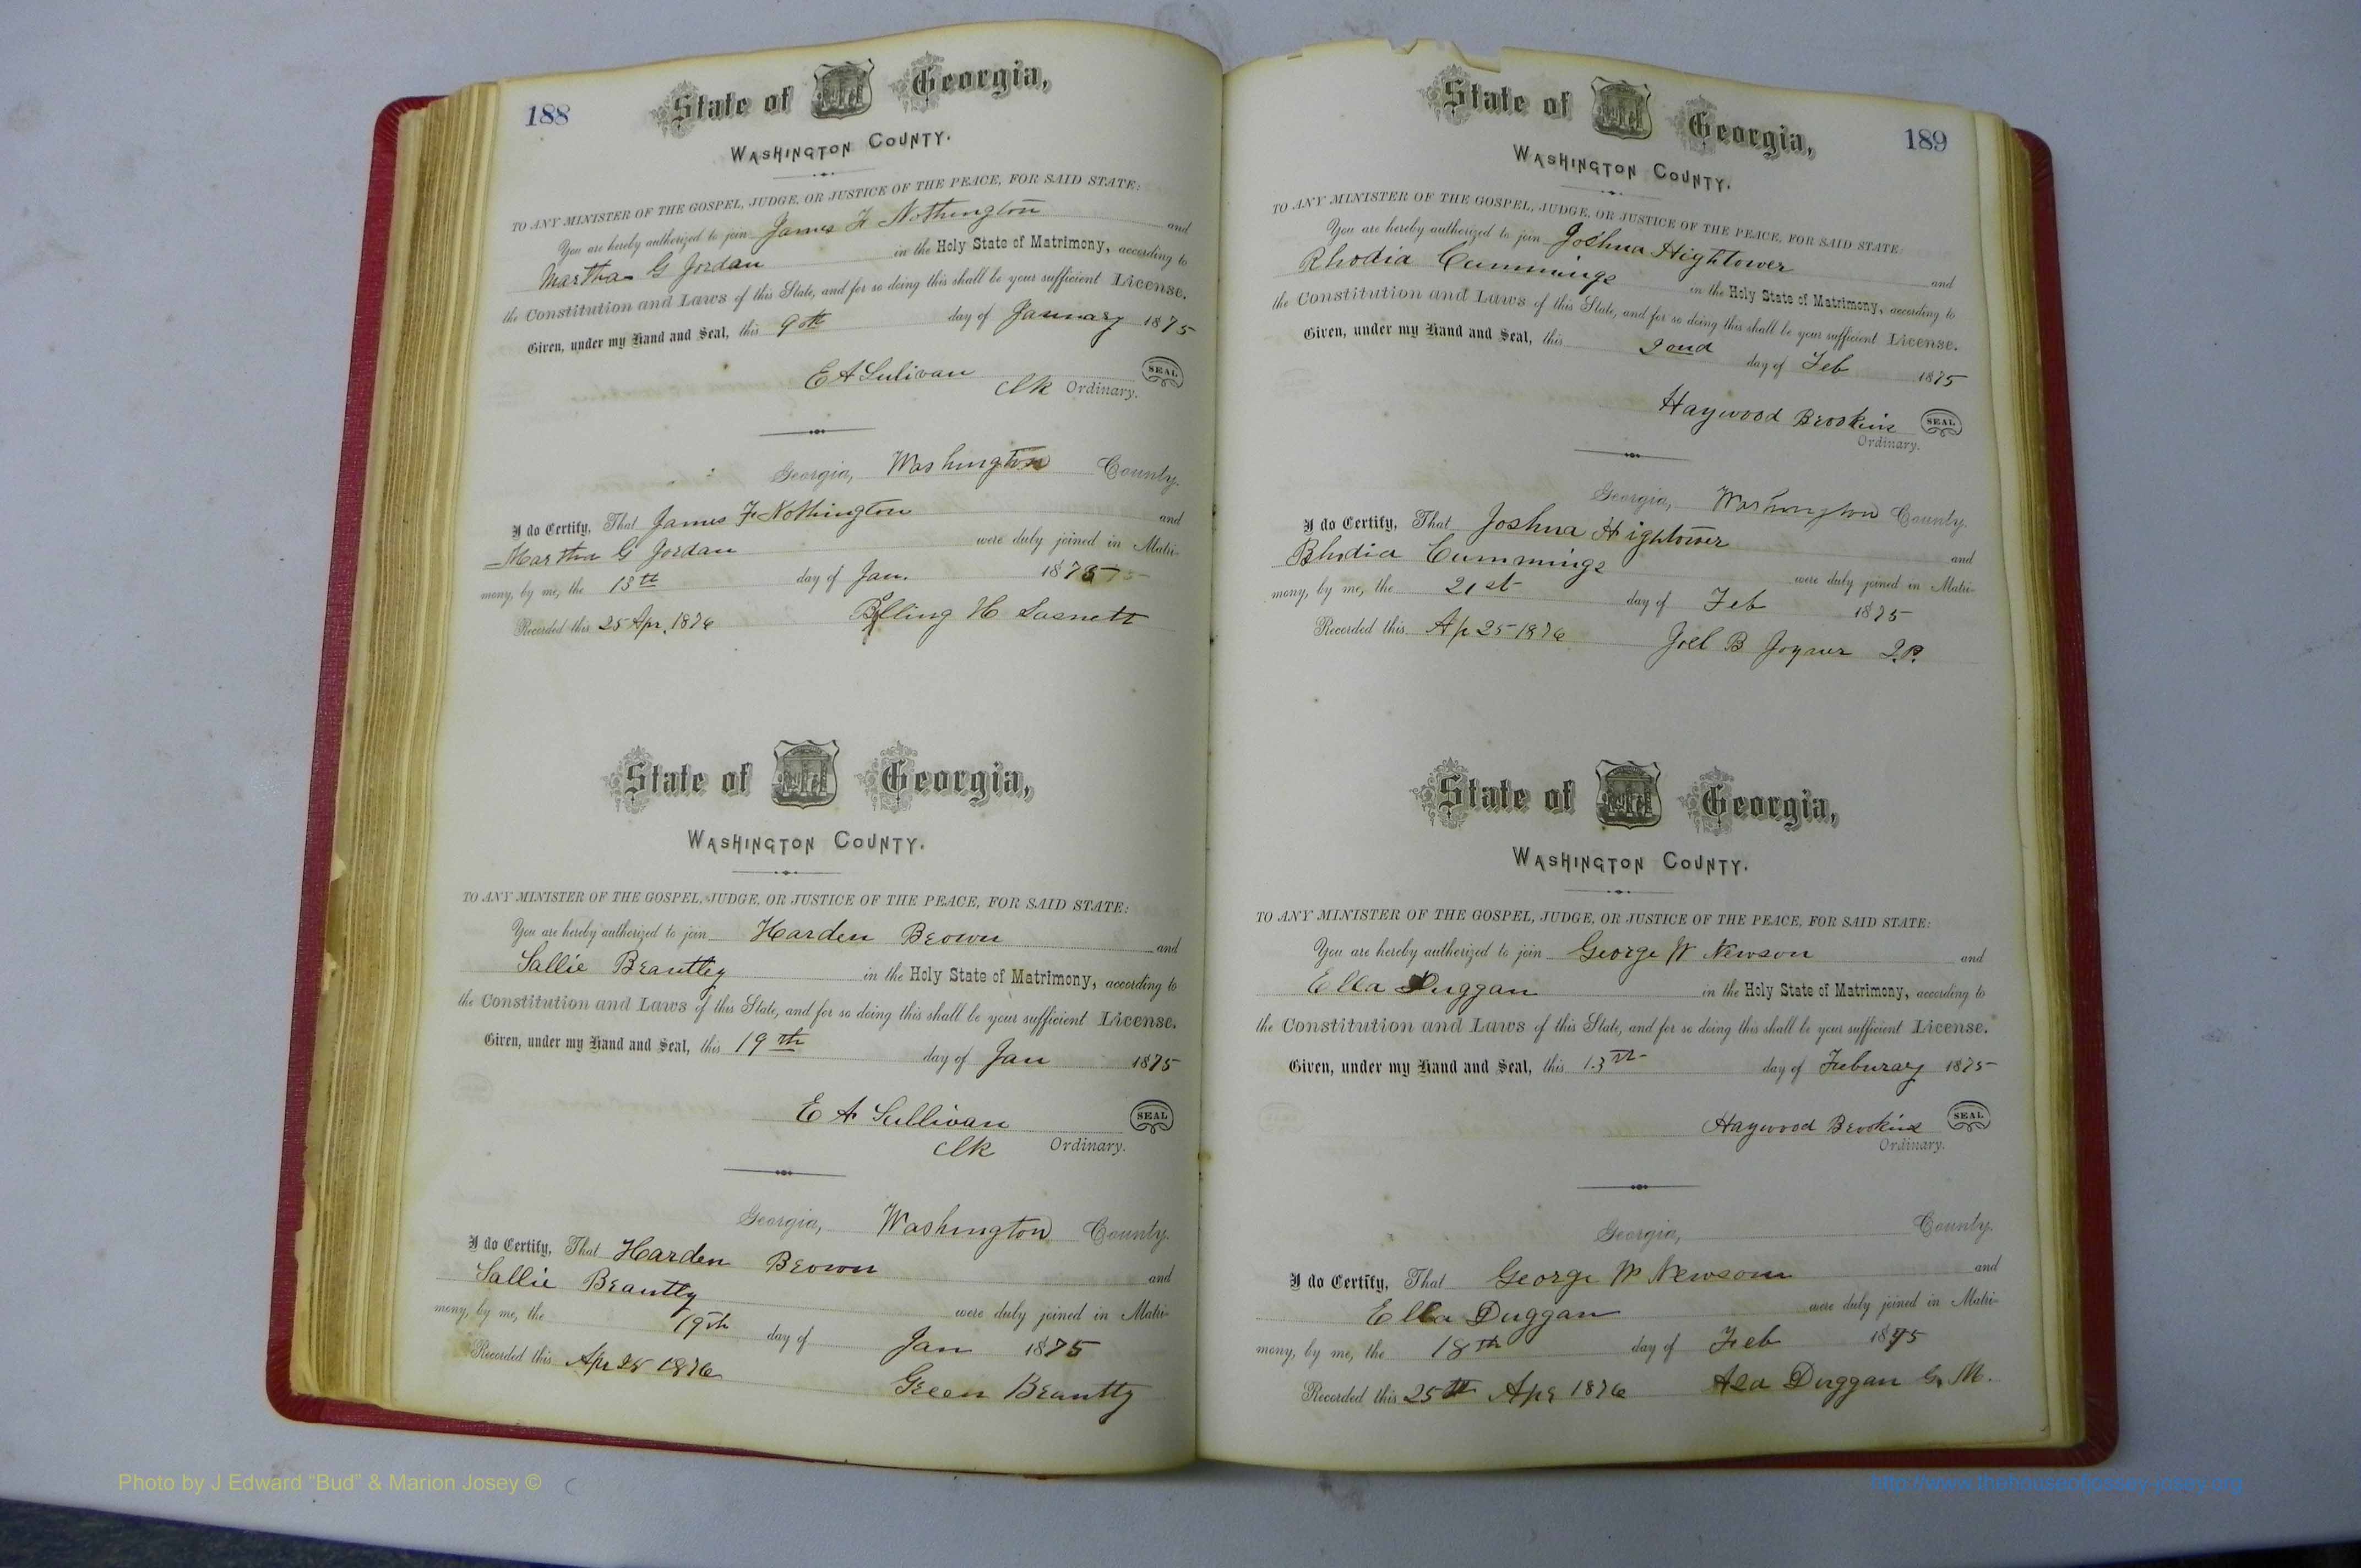 188
State of Georgia,
WASHINGTON COUNTY.
TO ANY MINISTER OF THE GOSPEL, JUDGE, OR JUSTICE OF THE PEACE, FOR SAID STATE:
You are hereby authorized to join James F Nothington and
Martha G Jordan in the Holy State of Matrimony, according to
the Constitution and Laws of this State, and for so doing this shall be your sufficient License.
Given, under my Hand and Seal, this 9th day of January 1875
E A Sulivan SEAL
Clk Ordinary.
Georgia, Washington County.
I do Certify, That James F Nothington and
Martha G Jordan were duly joined in Matri-
mony, by me, the 13th day of Jan. 1875
Recorded this 25 Apr. 1876 H Sasnett
State of Georgia,
WASHINGTON COUNTY.
TO ANY MINISTER OF THE GOSPEL, JUDGE, OR JUSTICE OF THE PEACE, FOR SAID STATE:
You are hereby authorized to join Harden Brown and
Sallie Brantley in the Holy State of Matrimony, according to
the Constitution and Laws of this State, and for so doing this shall be your sufficient License.
Given, under my Hand and Seal, this 19th day of Jan 1875
E A Sullivan SEAL
Clk Ordinary.
Georgia, Washington County.
I do Certify, That Harden Brown and
Sallie Brantly were duly joined in Matri-
mony, by me, the 19th day of Jan 1875
Recorded this Apr 25 1876 Green Brantly
189
State of Georgia,
WASHINGTON COUNTY.
TO ANY MINISTER OF THE GOSPEL, JUDGE, OR JUSTICE OF THE PEACE, FOR SAID STATE:
You are hereby authorized to join Joshua Hightower and
Rhodia Cummings in the Holy State of Matrimony, according to
the Constitution and Laws of this State, and for so doing this shall be your sufficient License.
Given, under my Hand and Seal, this 2ond day of Feb 1875
Haywood Brookins SEAL
Ordinary.
Georgia, Washington County.
I do Certify, That Joshua Hightower and
Rhodia Cummings were duly joined in Matri-
mony, by me, the 21st day of Feb 1875
Recorded this Ap 25 1876 Joel B Joyner J.P.
State of Georgia,
WASHINGTON COUNTY.
TO ANY MINISTER OF THE GOSPEL, JUDGE, OR JUSTICE OF THE PEACE, FOR SAID STATE:
You are hereby authorized to join George W Newson and
Ella Duggan in the Holy State of Matrimony, according to
the Constitution and Laws of this State, and for so doing this shall be your sufficient License.
Given, under my Hand and Seal, this 13th day of Feburary 1875
Haywood Brookins SEAL
Ordinary.
Georgia, County.
I do Certify, That George W Newsom and
Ella Duggan were duly joined in Matri-
mony, by me, the 18th day of Feb 1875
Recorded this 25th Apr 1876 Asa Duggan G. M.
Photo by J Edward “Bud” & Marion Josey ©
http://www.thehouseofjossey-josey.org